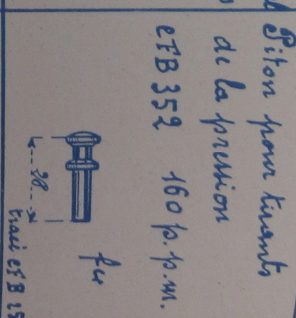 Piton pour tirants
de la pression
eFB 352 160 p.p.m.
fu
38
tracé eFB 25